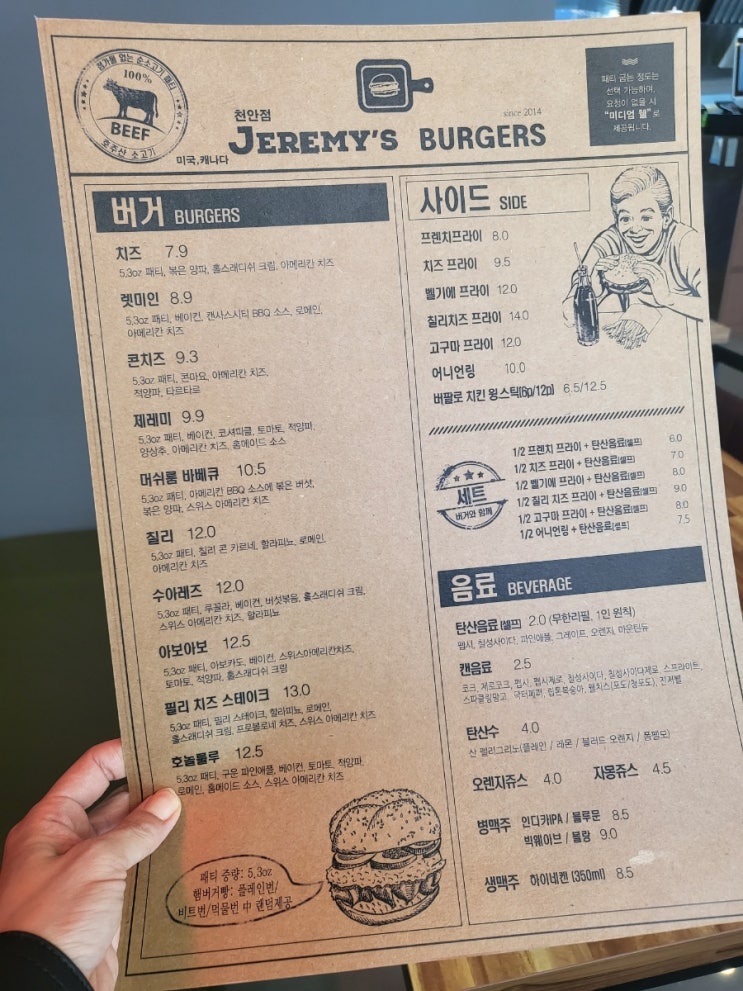 첨가물 없는 순소고기 패티
100%
BEEF
호주산 소고기
미국,캐나다
천안점
since 2014
JEREMY'S BURGERS
패티 굽는 정도는
선택 가능하며,
요청이 없을 시
"미디엄 웰"로
제공됩니다.
버거 BURGERS
치즈 7.9
5.3oz 패티, 볶은 양파, 홀스래디쉬 크림, 아메리칸 치즈
렛미인 8.9
5.3oz 패티, 베이컨, 캔사스시티 BBQ 소스, 로메인,
아메리칸 치즈
콘치즈 9.3
5.3oz 패티, 콘마요, 아메리칸 치즈,
적양파, 타르타르
제레미 9.9
5.3oz 패티, 베이컨, 코셔피클, 토마토, 적양파,
양상추, 아메리칸 치즈, 홈메이드 소스
머쉬룸 바베큐 10.5
5.3oz 패티, 아메리칸 BBQ 소스에 볶은 버섯,
볶은 양파, 스위스 아메리칸 치즈
칠리 12.0
5.3oz 패티, 칠리 콘 카르네, 할라피뇨, 로메인,
아메리칸 치즈
수아레즈 12.0
5.3oz 패티, 루꼴라, 베이컨, 버섯볶음, 홀스래디쉬 크림,
스위스 아메리칸 치즈, 할라피뇨
아보아보 12.5
5.3oz 패티, 아보카도, 베이컨, 스위스아메리칸치즈,
토마토, 적양파, 홀스래디쉬 크림
필리 치즈 스테이크 13.0
5.3oz 패티, 필리 스테이크, 할라피뇨, 로메인,
홀스래디쉬 크림, 프로볼로네 치즈, 스위스 아메리칸 치즈
호놀룰루 12.5
5.3oz 패티, 구운 파인애플, 베이컨, 토마토, 적양파,
로메인, 홈메이드 소스, 스위스 아메리칸 치즈
패티 중량: 5.3oz
햄버거빵: 플레인번/
비트번/먹물번 中 랜덤제공
사이드 SIDE
프렌치프라이 8.0
치즈 프라이 9.5
벨기에 프라이 12.0
칠리치즈 프라이 14.0
고구마 프라이 12.0
어니언링 10.0
버팔로 치킨 윙스틱(6p/12p) 6.5/12.5
세트
버거와 함께
1/2 프렌치 프라이 + 탄산음료(셀프) 6.0
1/2 치즈 프라이 + 탄산음료(셀프) 7.0
1/2 벨기에 프라이 + 탄산음료(셀프) 8.0
1/2 칠리 치즈 프라이 + 탄산음료(셀프) 9.0
1/2 고구마 프라이 + 탄산음료(셀프) 8.0
1/2 어니언링 + 탄산음료(셀프) 7.5
음료 BEVERAGE
탄산음료 (셀프) 2.0 (무한리필, 1인 원칙)
펩시, 칠성사이다, 파인애플, 그레이프, 오렌지, 마운틴듀
캔음료 2.5
코크, 제로코크, 펩시, 펩시제로, 칠성사이다, 칠성사이다제로, 스프라이트,
스파클링망고, 닥터페퍼, 립톤복숭아, 웰치스(포도/청포도), 진저엘
탄산수 4.0
산 펠리그리노(플레인 / 레몬 / 블러드 오렌지 / 폼펠모)
오렌지쥬스 4.0 자몽쥬스 4.5
병맥주 인디카IPA / 블루문 8.5
빅웨이브 / 볼랑 9.0
생맥주 하이네켄 (350ml) 8.5